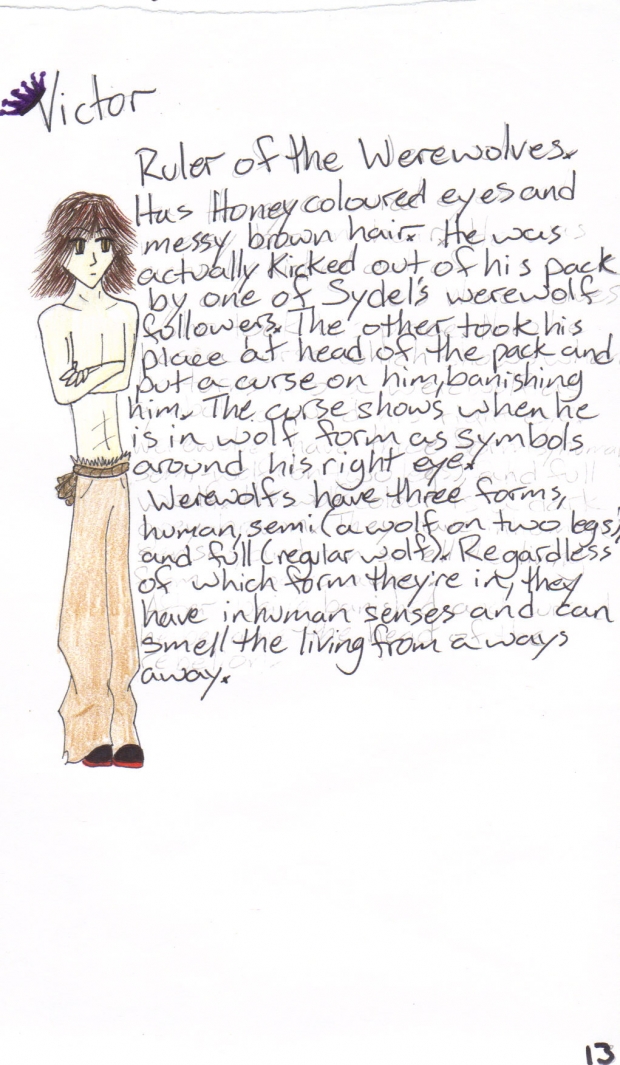 Victor
Ruler of the Werewolves.
Has Honey coloured eyes and
messy brown hair. He was
actually kicked out of his pack
by one of Sydel's werewolf
followers. The other took his
place at head of the pack and
put a curse on him, banishing
him. The curse shows when he
is in wolf form as symbols
around his right eye.
Werewolfs have three forms,
human, semi (a wolf on two legs)
and full (regular wolf). Regardless
of which form they're in, they
have inhuman senses and can
smell the living from a ways
away.
13